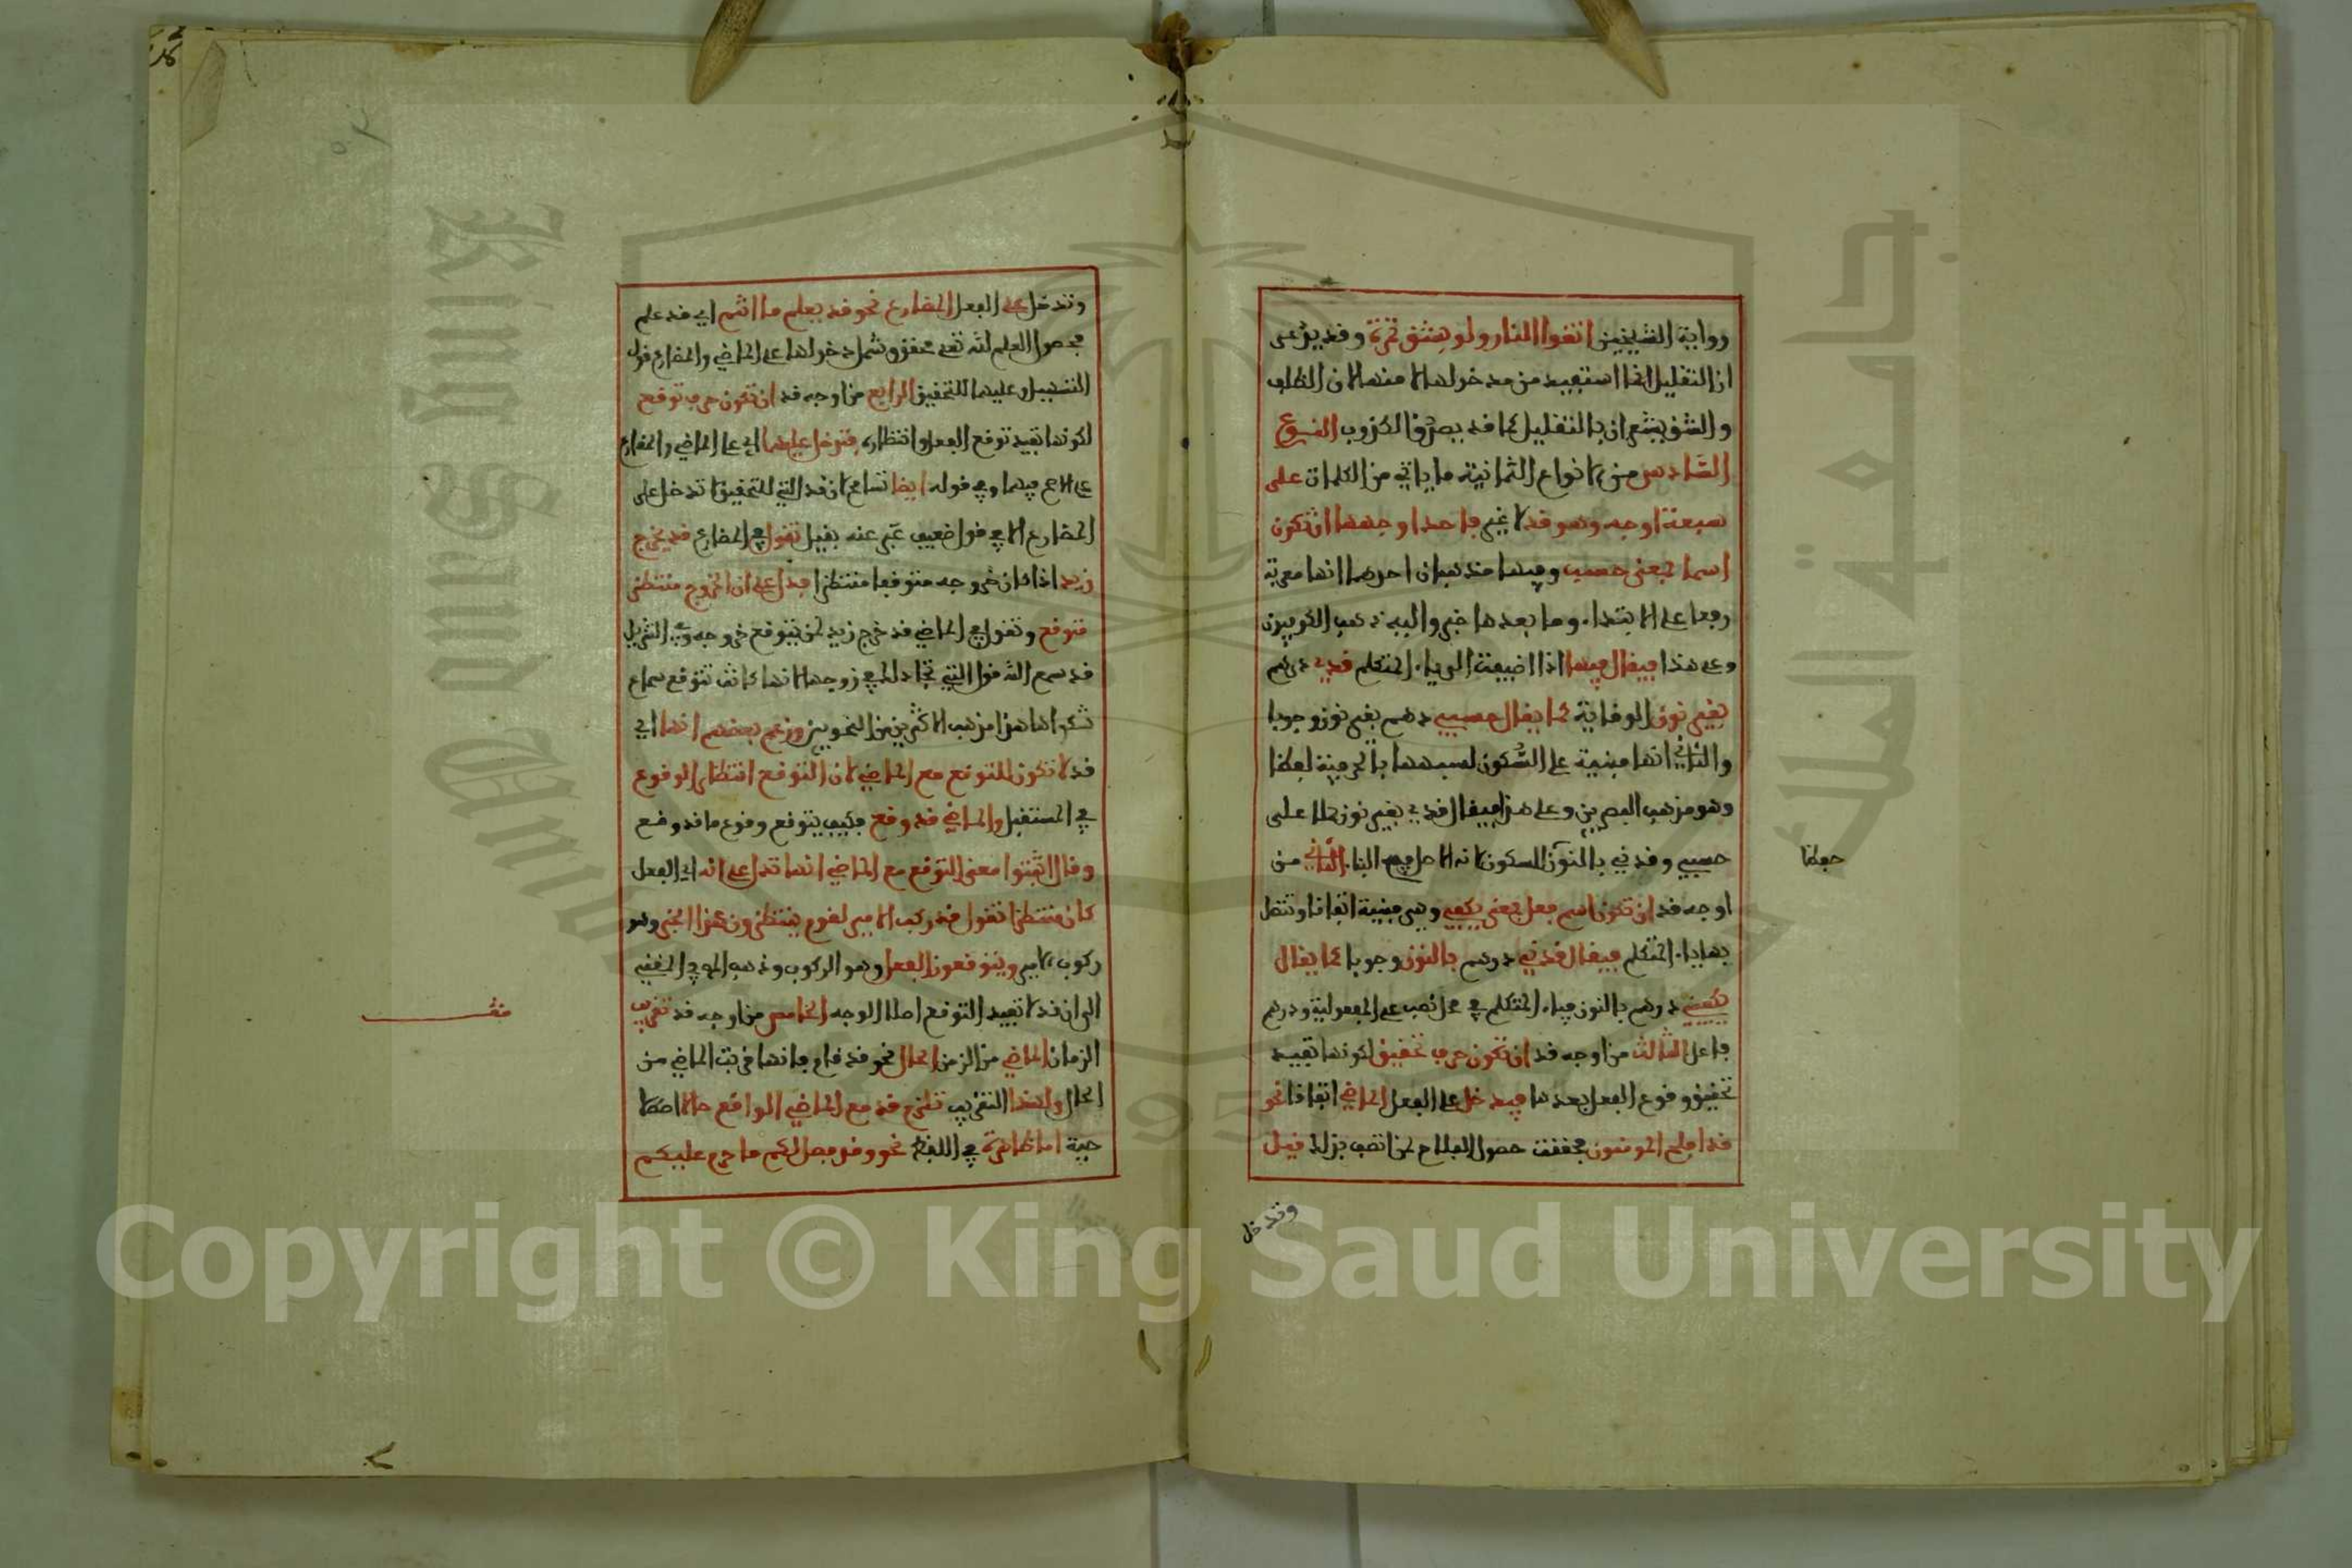 رواية الشيخين اتقوا النار ولو بشق تمرة وقد يدعى
ان التقليل انما استفيد من مدخولها لا منها لان الظلف
والشق يشعران بالتقليل كما قد يصدق الكذوب النوع
السادس من الانواع الثمانية ما ياتي من الكلمات على
سبعة اوجه وهو قد لا غير فاحد اوجهها ان تكون
اسما بمعنى حسب وفيها مذهبان احدهما انها معربة
رفعا على الابتداء وما بعدها خبر واليه ذهب الكوفيون
وعلى هذا فيقال فيها اذا اضيفت الى ياء المتكلم قدي درهم
بغير نون الوقاية كما يقال حسبي درهم بغير نون وجوبا
والثاني انها مبنية على السكون لشبهها بالحرفية لفظا
وهو مذهب البصريين وعلى هذا فيقال قدي بغير نون حملا على
حسبي وقدني بالنون للسكون لانه الاصل في البناء الثاني من
اوجه قد ان تكون اسم فعل بمعنى يكفي وهي مبنية اتفاقا وتتصل
بها ياء المتكلم فيقال قدني درهم بالنون وجوبا كما يقال
يكفيني درهم بالنون فياء المتكلم في محل نصب على المفعولية ودرهم
فاعل الثالث من اوجه قد ان تكون حرف تحقيق لكونها تفيد
تحقيق وقوع الفعل بعدها فيدخل على الفعل الماضي اتفاقا نحو
قد افلح المومنون فحققت حصول الفلاح لمن اتصف بذلك قيل
وتدخل
وتدخل على الفعل المضارع نحو قد يعلم ما انتم اي قد علم
فحصول العلم لله تعلى محقق وشمل دخولها على الماضي والمضارع قول
التسهيل وعليهما للتحقيق الرابع من اوجه قد ان تكون حرف توقع
لكونها تفيد توقع الفعل وانتظاره فتدخل عليهما اي على الماضي والمضارع
على الاصح فيهما وفي قوله ايضا تسامح لان قد التي للتحقيق لا تدخل على
المضارع الا في قول ضعيف عبر عنه بقيل تقول في المضارع قد يخرج
زيد اذا كان خروجه متوقعا منتظرا فدل على ان الخروج منتظر
متوقع وتقول في الماضي قد خرج زيد لمن يتوقع خروجه وفي التنزيل
قد سمع الله قول التي تجادلك في زوجها لانها كانت تتوقع سماع
شكواها هذا مذهب الاكثرين من النحويين وزعم بعضهم انها اي
قد لا تكون للتوقع مع الماضي لان التوقع انتظار الوقوع
في المستقبل والماضي قد وقع فكيف يتوقع وقوع ما قد وقع
وقال الذين اثبتوا معنى التوقع مع الماضي انها تدل على انه اي الفعل
كان منتظرا تقول قد ركب الامير لقوم ينتظرون هذا الخبر وهو
ركوب الامير ويتوقعون الفعل وهو الركوب وذهب المص في المغني
الى ان قد لا تفيد التوقع اصلا الوجه الخامس من اوجه قد تقريب
الزمان الماضي من الزمن الحال نحو قد قام فانها قربت الماضي من
الحال ولهذا التقريب تلزم قد مع الماضي الواقع حالا اصطلا
حية اما ظاهرة في اللفظ نحو وقد فصل لكم ما حرم عليكم
King Saud University
جامعة الملك سعود
Copyright © King Saud University